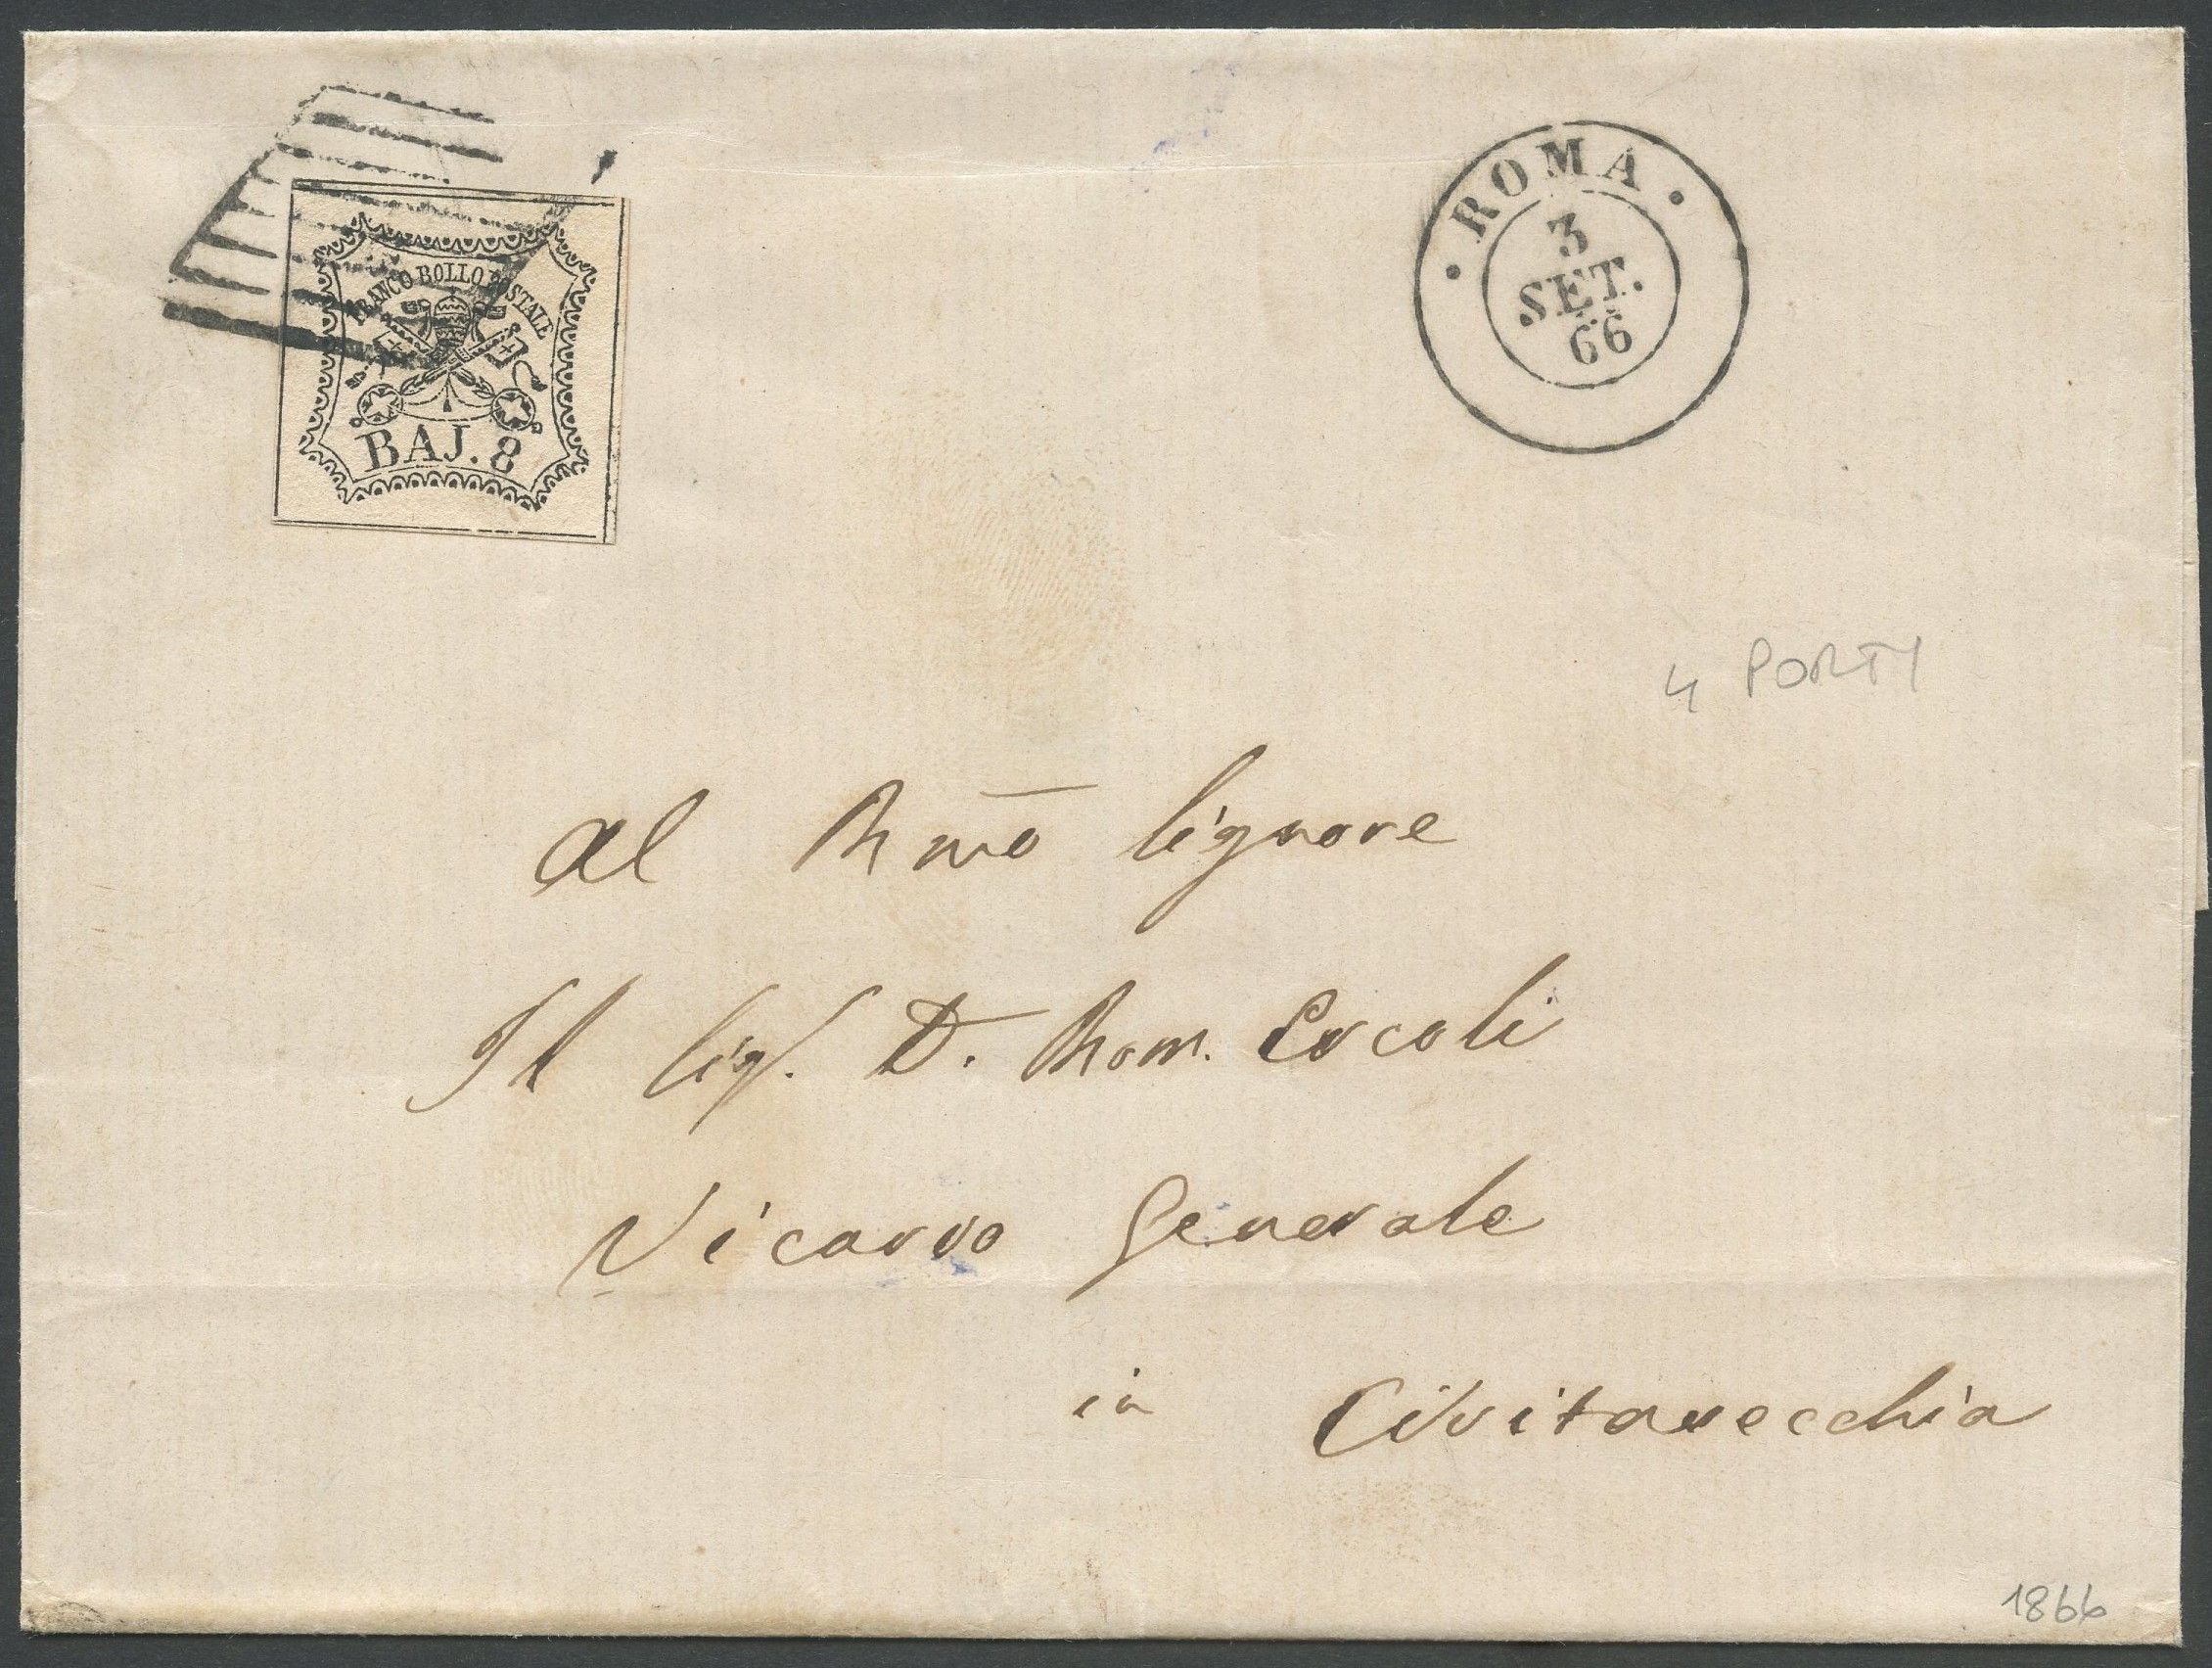 FRANCO BOLLO POSTALE
BAJ. 8
ROMA
3
SET.
66
4 PORTI
Al Rmo Signore
Il Sig. D. Rom. Ercoli
Vicario Generale
in Civitavecchia
1866